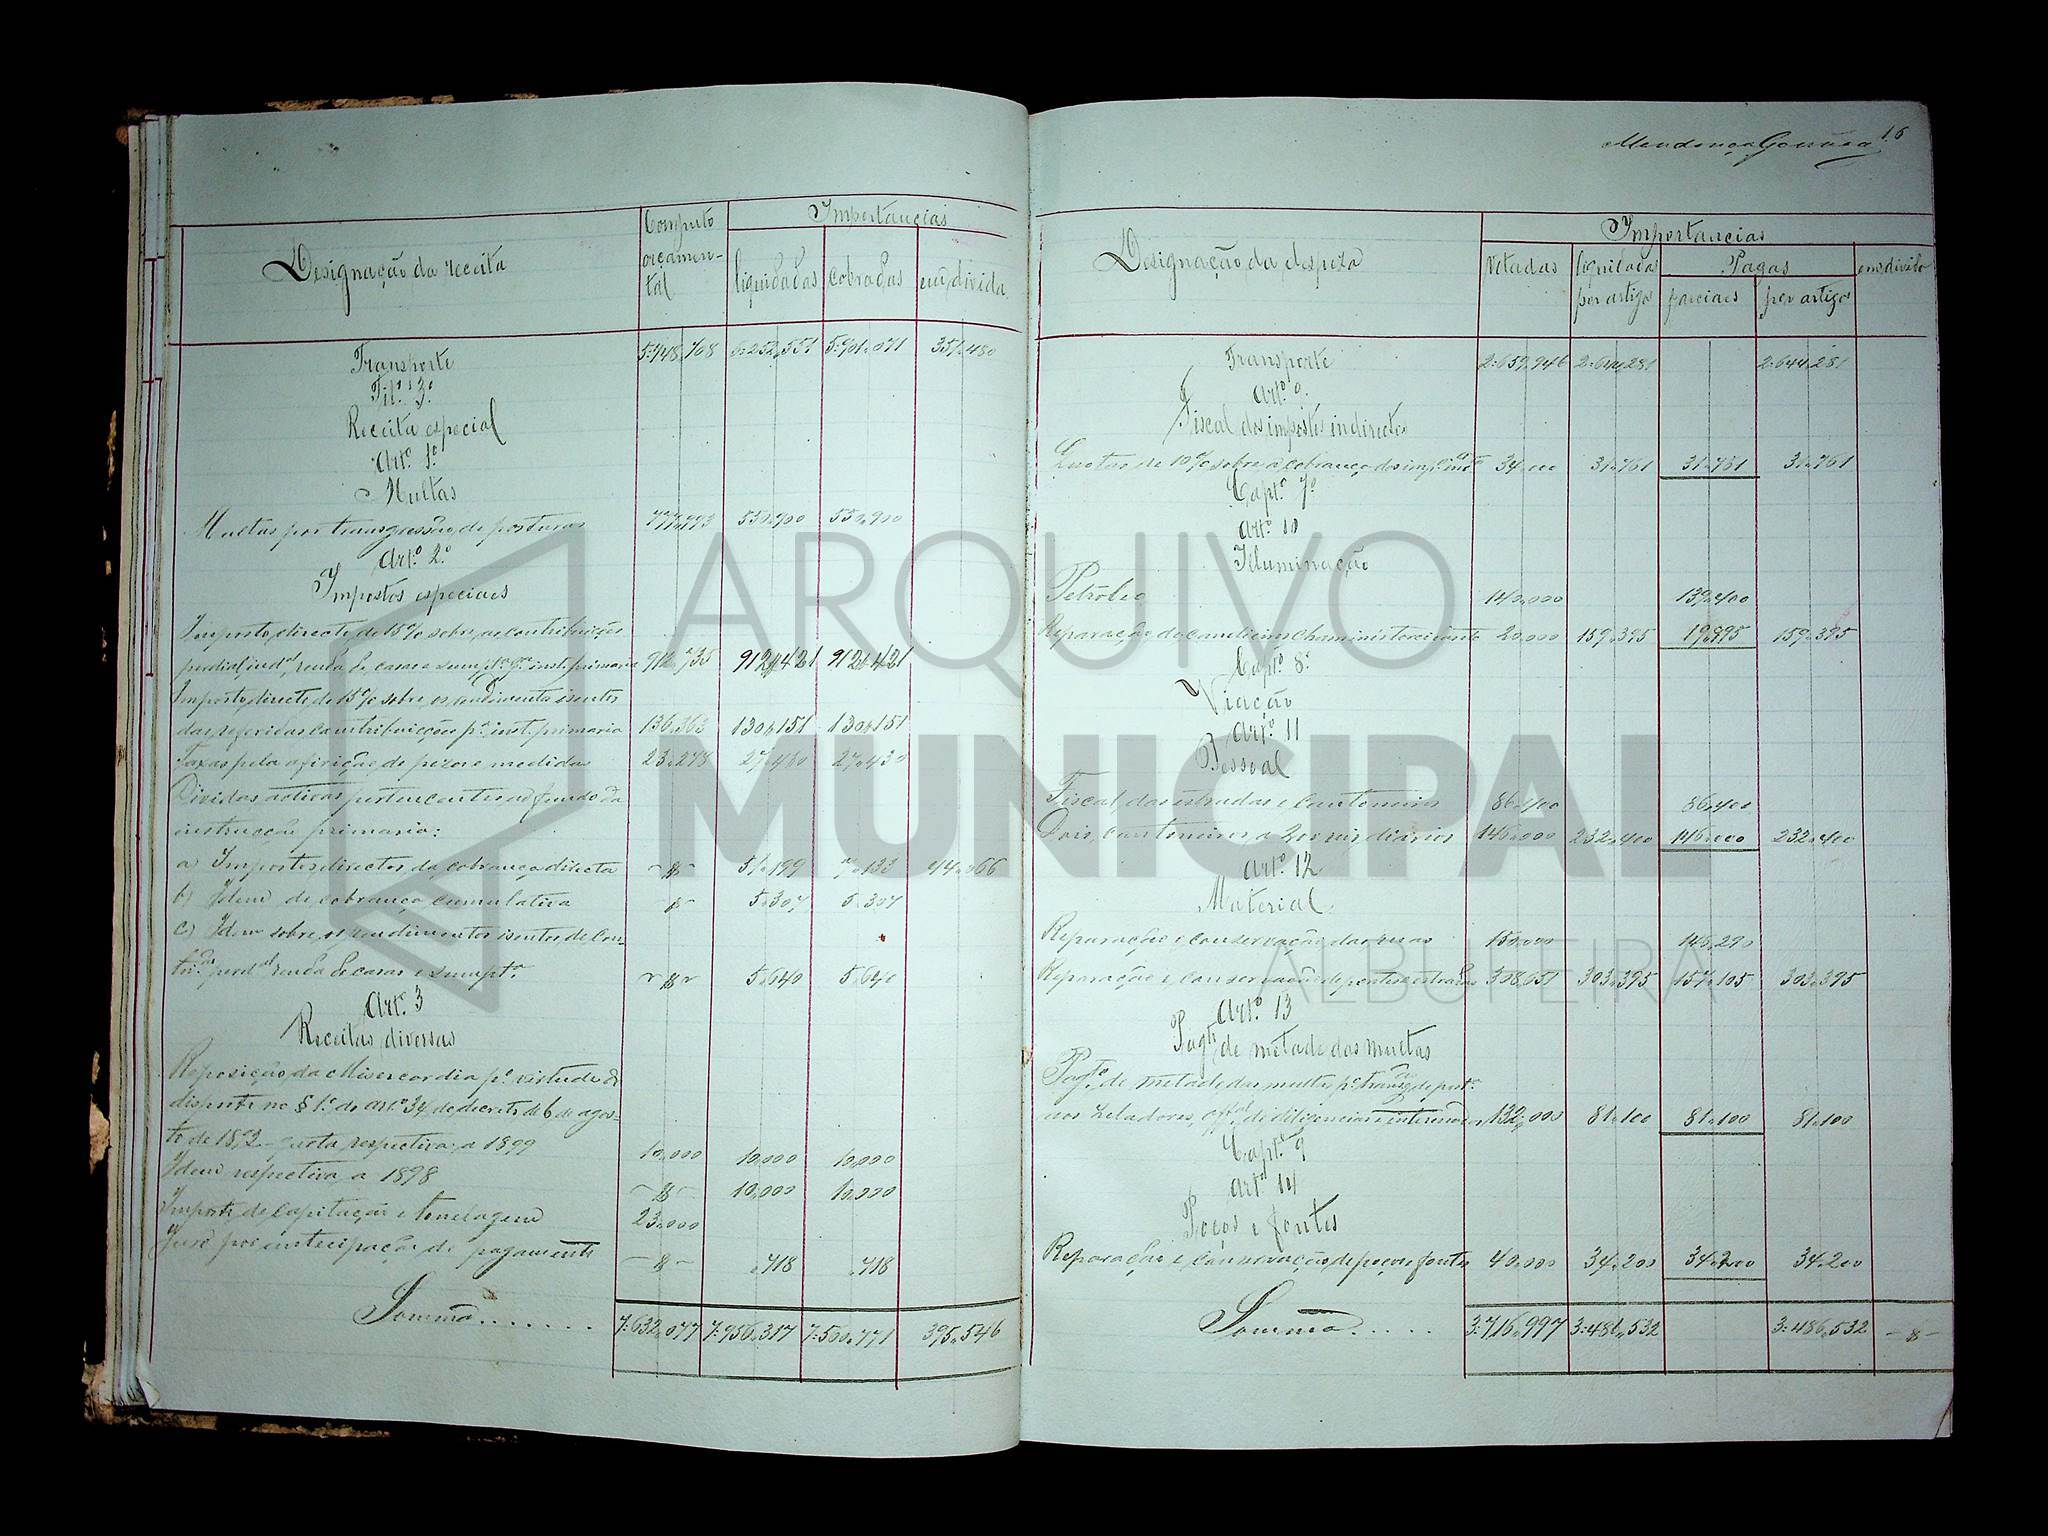 Designação da receita
Computo orçamen-tal
Importancias
liquidadas cobradas em divida
Transporte 5:748,708 6:252,551 5:901,071 351,480
Tit.º 3.º
Receita especial
Art.º 1.º
Multas
Multas por transgressão de posturas 777,773 550,900 550,900
Art.º 2.º
Impostos especiaes
Imposto directo de 15% sobre as contribuições
predial, ind.al, renda de casas e sumpt.a p.a inst. primaria 912,735 912,421 912,421
Imposto directo de 15% sobre os rendimentos isentos
das referidas contribuições p.a inst. primaria 136,363 130,151 130,151
Taxas pela afirição de pezos e medidas 23,278 27,430 27,430
Dividas activas pertencentes ao fundo da
instrucção primaria:
a) Impostos directos da cobrança directa -8- 51,199 7,133 44,066
b) Idem de cobrança cumulativa 8- 5,307 5,307
c) Idem sobre os rendimentos isentos de con-
tri.ão pred.al renda de casas e sumpt.a -8- 5,640 5,640
Art.º 3
Receitas diversas
Reposição da Misericordia p.r virtude do
disposto no § 1.º do art.º 34 do decreto de 6 de agos-
to de 1892 - quota respectiva a 1899 10,000 10,000 10,000
Idem respectiva a 1898 -8- 10,000 10,000
Imposto de capitação e tonelagem 23,000
Juro por antecipação de pagamento -8- ,718 ,718
Somma....... 7:632,077 7:956,317 7:560,771 395,546
16
Mendonça Gouvea
Designação da despeza
Importancias
Votadas liquidadas por artigos Pagas em divida
parciaes por artigos
Transporte 2:659,946 2:644,281 2:644,281
Art.º 9.º
Fiscal dos impostos indirectos
Quotas de 10% sobre a cobrança dos imp.os ind.os 34,000 31,761 31,761 31,761
Capt.º 7.º
Art.º 10
Illuminação
Petroleo 140,000 139,400
Reparação de candieiros chaminés torcidas 20,000 159,395 19,995 159,395
Capt.º 8.º
Viação
Art.º 11
Pessoal
Fiscal das estradas e cantoneiros 86,400 86,400
Dois cantoneiros a 200 reis diarios 146,000 232,400 146,000 232,400
Art.º 12
Material
Reparação e conservação das ruas 150,000 146,290
Reparação e conservação de pontes e estradas 308,651 303,395 157,105 303,395
Art.º 13
Pagt.º de metade das multas
Pagt.º de metade das multas p.r transg.ão de post.as
aos zeladores, off.al de diligencias 132,000 81,100 81,100 81,100
Capt.º 9
Art.º 14
Poços e fontes
Reparação e conservação de poços e fontes 40,000 34,200 34,200 34,200
Somma..... 3:716,997 3:486,532 3:486,532 -8-
ARQUIVO
MUNICIPAL
ALBUFEIRA